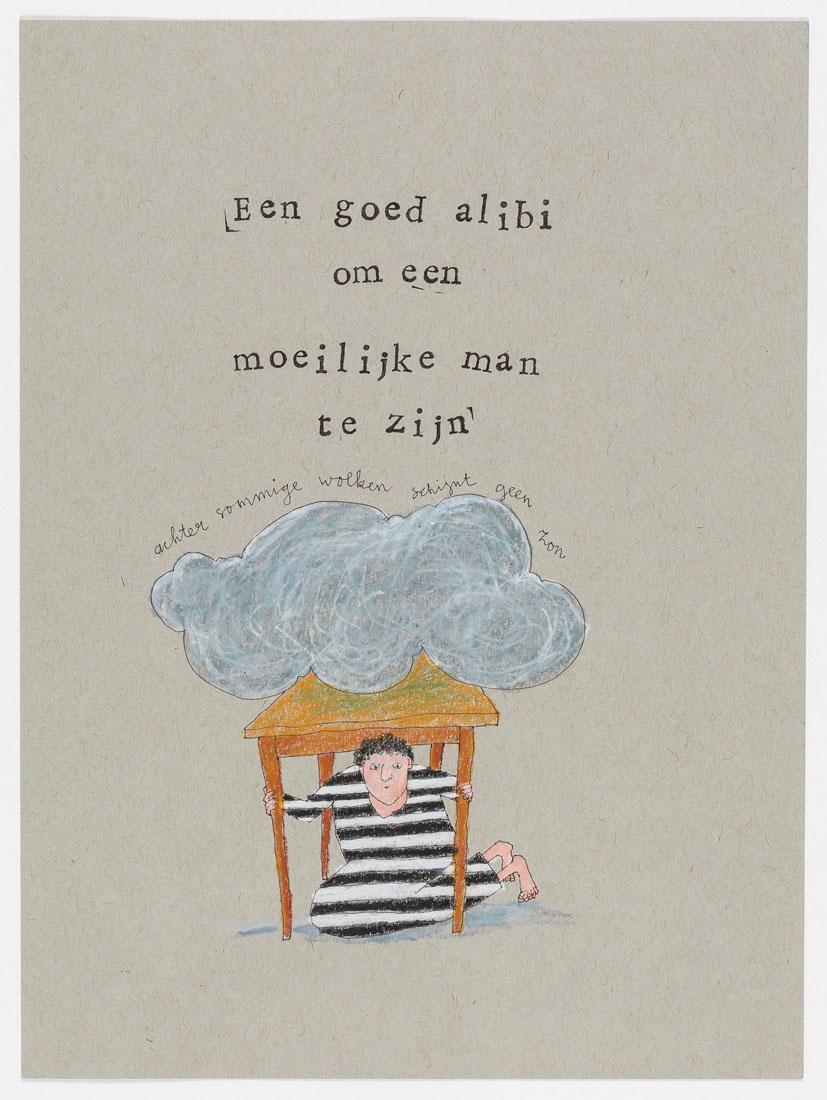 Een goed alibi
om een
moeilijke man
te zijn
achter sommige wolken schijnt geen zon